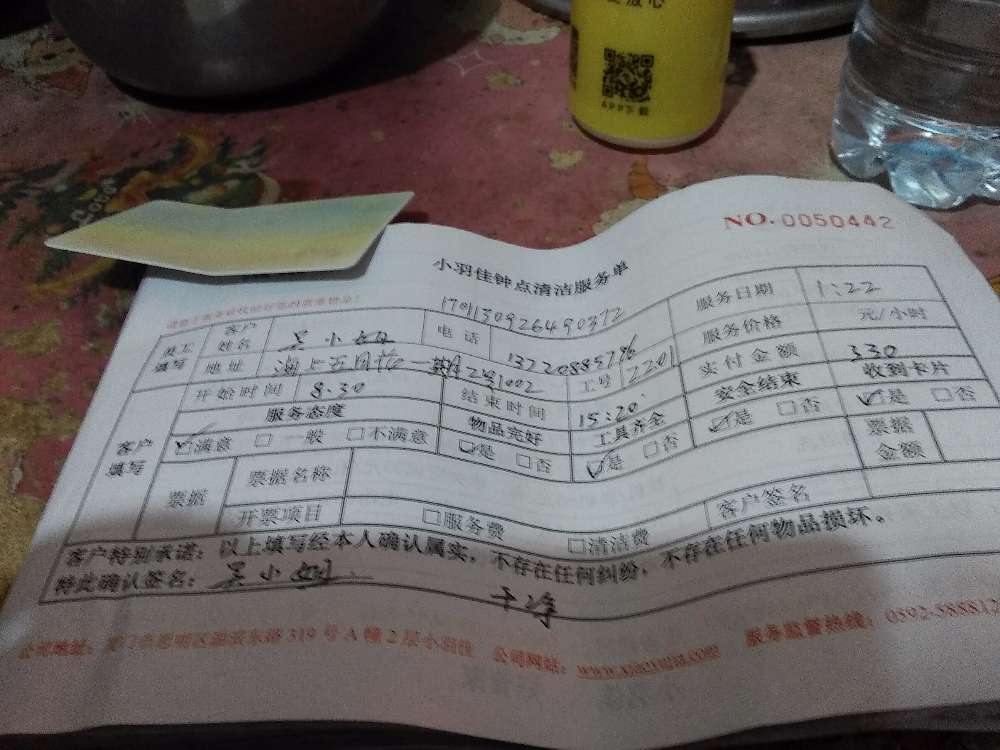 APP下载
NO. 0050442
小羽佳钟点清洁服务单
170113092649037 2
员工填写 客户姓名 吴小姐 电话 13720885796 服务日期 1:22
地址 海上五月花一期2号1002 工号 2201 服务价格 元/小时
开始时间 8:30 结束时间 15:20 实付金额 330
客户填写 服务态度 物品完好 工具齐全 安全结束 收到卡片
☑满意 □一般 □不满意 ☑是 □否 ☑是 □否 ☑是 □否 ☑是 □否
票据 票据名称 票据金额
开票项目 □服务费 □清洁费 客户签名
客户特别承诺：以上填写经本人确认属实，不存在任何纠纷，不存在任何物品损坏。
特此确认签名：吴小姐
干净
公司地址：厦门市思明区 东路319号A幢2层小羽佳 公司网站：www.xiaoyujia.com 服务监督热线：0592-588812